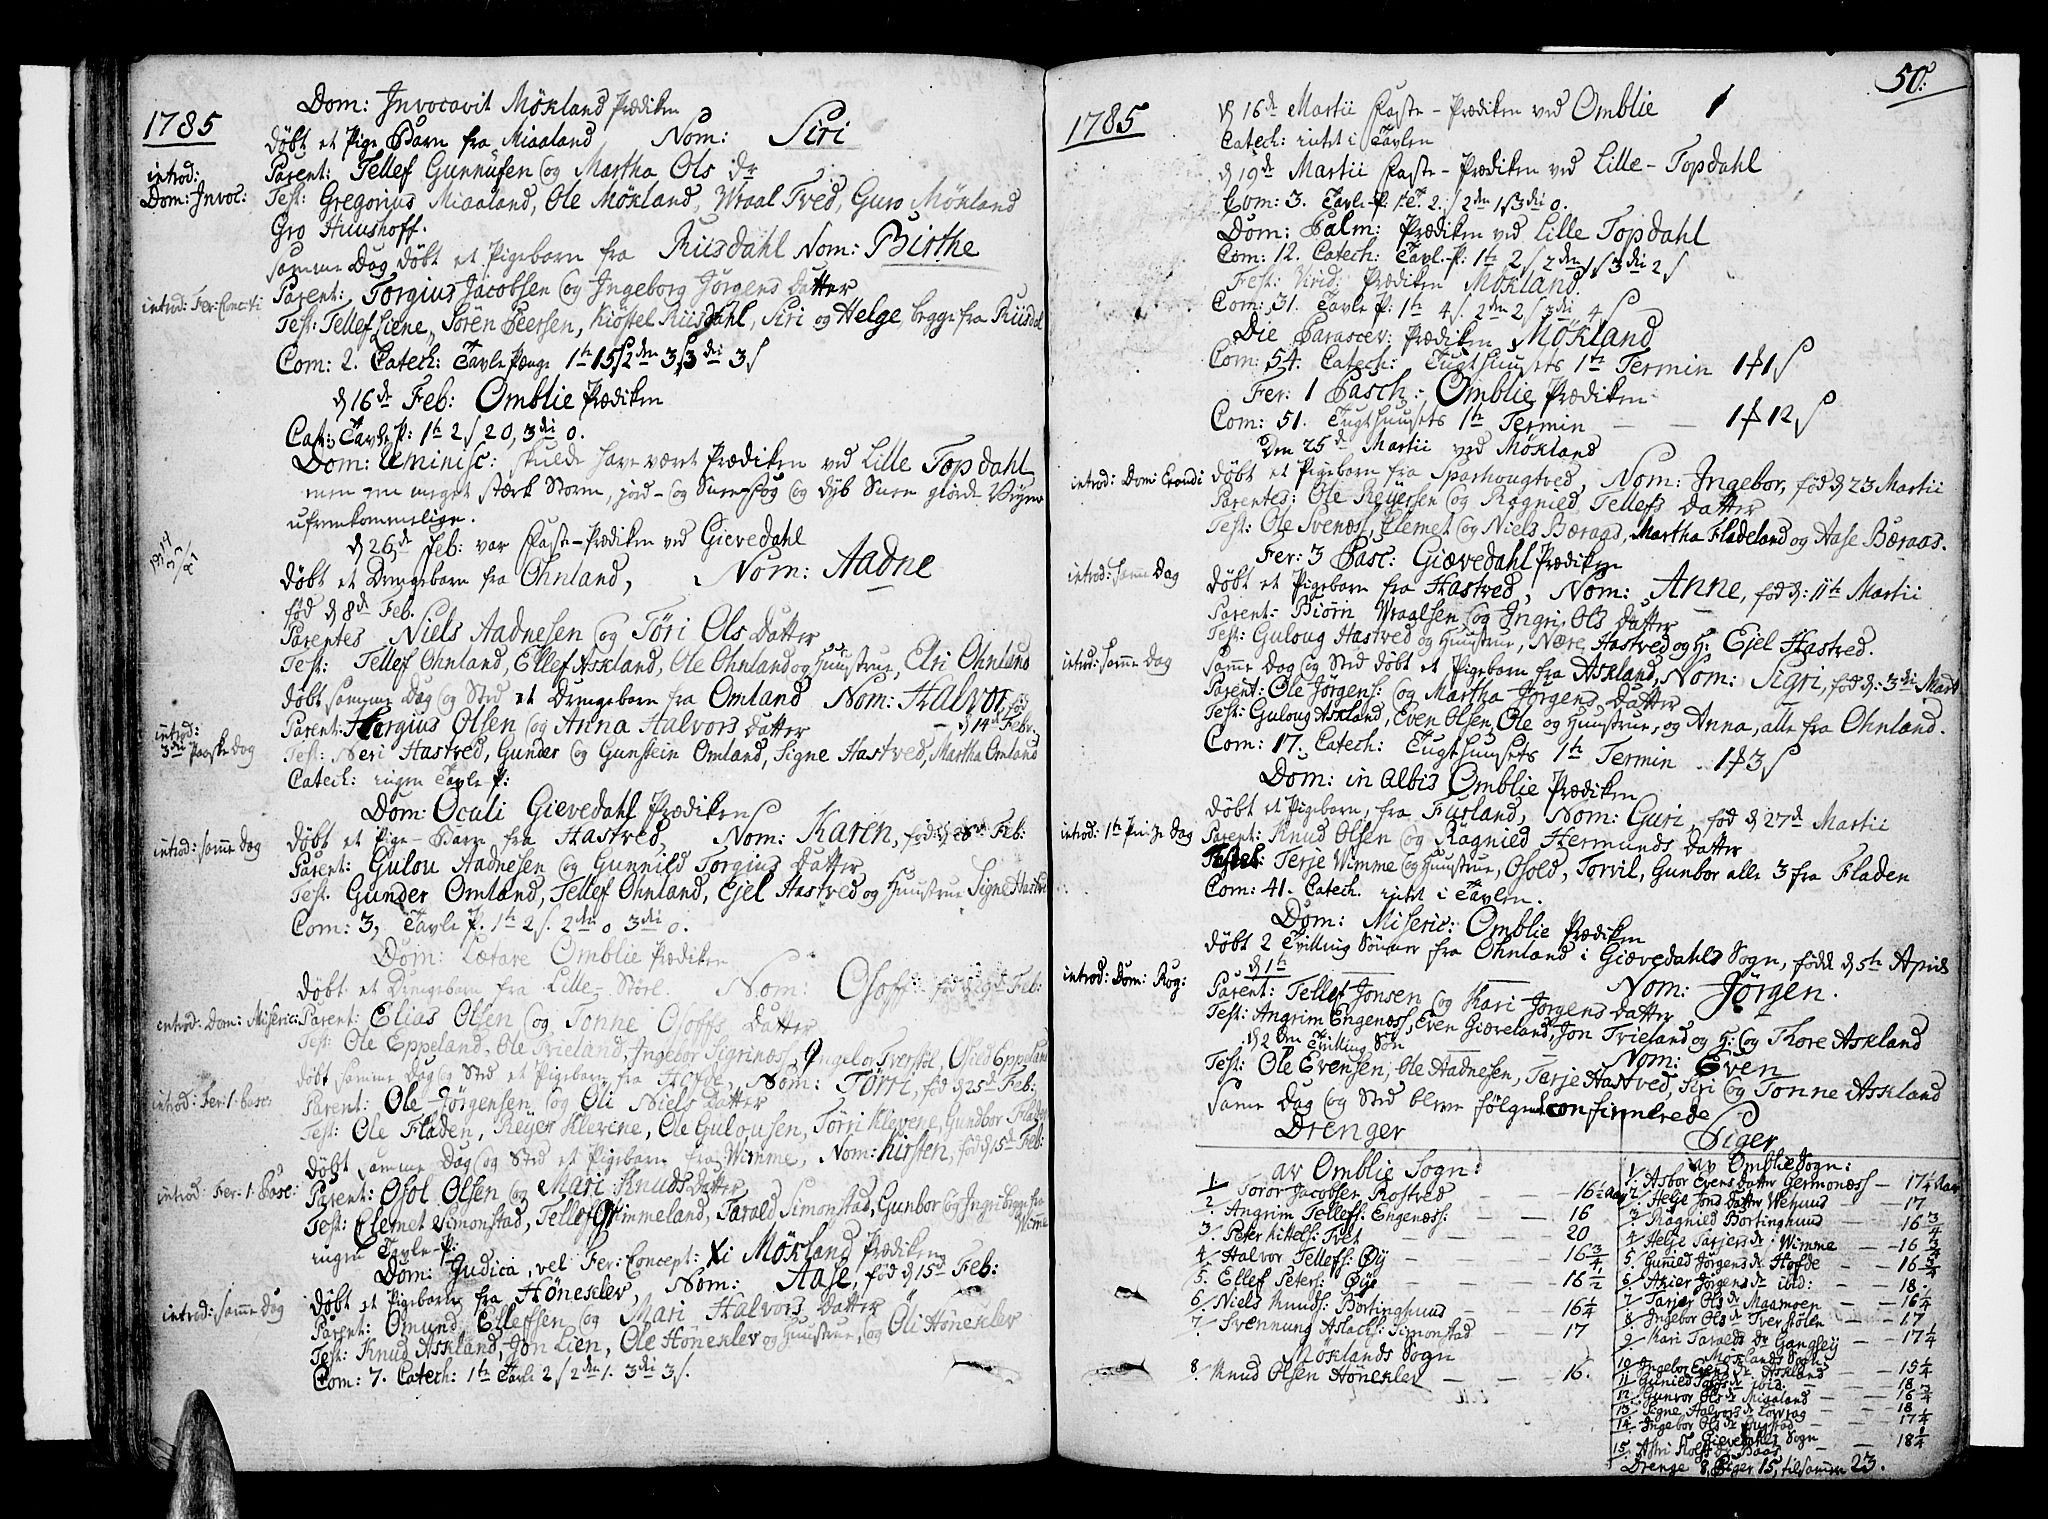 1785
Dom: Invocavit Mökland Prædiken
döbt et Pige Barn fra Miaaland Nom: Siri
introd: Dom: Invoc:
Parent: Tellef Gunnufsen og Martha Ols dr
Test: Gregorius Miaaland, Ole Mökland, Wraal Tved, Guro Mökland
Gro Huushoff.
samme Dag döbt et Pigebarn fra Rusdahl Nom: Birthe
introd: Fer: Concti
Parent: Torgius Jacobsen og Ingeborg Jörgens datter
Test: Tellef Liene, Sören Peersen, Kiöstel Ruusdahl, Siri og Helge, begge fra Ruusdal
Com: 2. Catech: Tavle Penge 1te 15 s 2den 3 s 3die 3 s
d 16de Feb: Omblie Prædiken
Cat: Tavle P: 1te 2 s 2 0, 3die 0.
Dom: Reminisc: skulde have været Prædiken ved Lille Topdahl
men en meget stærk Storm, jord- og Snee-fog og dyb Snee giorde Veyene
ufremkommelige.
d 26de Feb: var Faste-Prædiken ved Gievedahl
döbt et Drengebarn fra Ohnland, Nom: Aadne
föd d 8de Feb.
Parentes Niels Aadnesen og Töri Ols datter
Test: Tellef Ohnland, Ellef Askland, Ole Ohnland og Huustrue, Elri Ohnland
döbt samme Dag og Sted et Drengebarn fra Omland Nom: Halvor, föd
d 14de Febr.
introd: 3die Paaske dag
Parent: Torgius Olsen og Anna Halvors datter
Test: Neri Hastved, Gunder og Gunstein Omland, Signe Hastved, Martha Omland
Catech: ingen Tavle-P:
Dom: Oculi Gievedahl Prædiken
introd: samme dag
döbt et Pige-Barn fra Hastved, Nom: Karen, föd Feb:
Parent: Gulou Aadnesen og Gunnild Torgius datter
Test. Gunder Omland, Tellef Ohnland, Ejel Hastved og Huustrue Signe Hastved
Com: 3, Tavle P. 1te 2 s. 2den 0 3die 0.
Dom: Lætare Omblie Prædiken
döbt et Drengebarn fra Lille-Störl Nom: Osoff: föd Feb:
introd: Dom: Miseric:
Parent: Elias Olsen og Tonne Osoffs datter
Test: Ole Eppeland, Ole Trieland, Ingebor Sigrinæss, Ingebor Tverstöl, Osied Eppeland
döbt samme Dag og Sted et Pigebarn fra Hofde, Nom: Törri, föd d 25de Feb:
introd: Fer: 1. Pasc:
Parent: Ole Jörgensen og Oli Niels datter
Test: Ole Fladen, Reyer Klevene, Ole Gulousen, Törri Klevene, Gundbor Fladen
döbt samme Dag og Sted et Pigebarn fra Wimme, Nom: Kirsten, föd d 15de Feb:
introd: Fer: 1. Pasc:
Parent: Osol Olsen og Mari Knuds datter
Test: Clemet Simonstad, Tellef Grimmeland, Tarald Simonstad, Gunbor og Ingri begge fra Wimme
ingen Tavle-P:
Dom: Judica, vel Fer: Concept: Mökland Prædiken
introd: samme dag
döbt et Pigebarn fra Höneklev, Nom: Aase, föd d 15de Feb:
Parent: Omund Ellefsen og Mari Halvors datter
Test: Knud Askland, Jon Lien, Ole Höneklev og Huustrue, og Oli Höneklev
Com: 7. Catech: 1te Tavle 2 s 2den 1. 3die 3 s.
50.
1785
d 16de Martii Faste-Prædiken ved Omblie
Catech: intet i Tavlen
d 19de Martii Faste-Prædiken ved Lille-Topdahl
Com: 3. Tavle-P. 1te. 2. s 2den 1 s 3die 0.
Dom: Palm: Prædiken ved Lille Topdahl
Com: 12. Catech: Tavl-P: 1te 2 s 2den 1 s 3die 2 s
Fest: Virid: Prædiken Mökland.
Com: 31. Tavle P: 1te 4 s. 2den 2 s 3die 4 s
Die Parascev: Prædiken Mökland
Com: 54. Catech: Tugthuusets 1te Termin 1 1 s
Fer: 1 Pasch: Omblie Prædiken
Com: 51. Tugthuusets 1te Termin 1 12 s
Den 25de Martii ved Mökland
introd: Dom: Exaudi
döbt et Pigebarn fra Sparhougtved, Nom: Ingebor, föd d 23 Martii
Parentes: Ole Reyersen og Ragnied Tellefs datter
Test: Ole Svenæss, Clemet og Niels Bæraas, Martha Fladeland og Aase Bæraas.
Fer: 3 Pasc: Giævedahl Prædiken
introd: samme Dag
döbt et Pigebarn fra Hastved, Nom: Anne, föd d: 11te Martii
Parent: Biörn Wraalsen og Ingri Ols datter
Test: Guloug Hastved og Huustrue, Nære Hastved og H: Ejel Hastved.
introd: samme dag
samme Dag og Sted döbt et Pigebarn fra Askland, Nom: Sigri, föd d: 3die Mart
Parent: Ole Jörgens: og Martha Jörgens datter
Test: Guloug Askland, Even Olsen, Ole og Huustrue, og Anna, alle fra Ohnland.
Com: 17. Catech: Tugthuusets 1te Termin 1 3 s
Dom: in Albis Omblie Prædiken
döbt et Pigebarn, fra Fusland, Nom: Guri, föd d 27de Martii
introd: 1te Pintze dag
Parent: Knud Olsen og Ragnied Hermunds datter
Testes: Terje Wimme og Huustrue, Osold, Torvil, Gunbor alle 3 fra Fladen
Com: 41. Catech. intet i Tavlen.
Dom: Miseric: Omblie Prædiken
döbt 2 Tvilling Sönner fra Ohnland i Giævedahls Sogn, födde d 5te April
introd: Dom: Rog:
d 1te Nom: Jörgen.
Parent: Tellef Jonsen og Kari Jörgens datter
Test: Angrim Engenæss, Even Giæveland, Jon Trieland og H: og Thore Askland
d 2den Tvilling Sön Nom: Even
Test: Ole Evensen, Ole Aadnesen, Terje Hastved, Siri og Tonne Askland
Samme Dag og Sted bleve fölgende confirmerede
Drenger
av Omblie Sogn:
1. Toror Jacobsen Rostved 16 1/2 Aar
2. Angrim Tellefs: Engenæss: 16
3. Peter Kittels: Tvet 20
4. Halvor Tellefs: Öÿ 16 3/4
5. Ellef Peters: Öÿe 16 1/2
6. Niels Knuds: Bortinghuud 16 1/4
7. Svennung Aslachs: Simonstad 17
Möklands Sogn
8. Knud Olsen Höneklev 16.
Piger
av Omblie Sogn:
1. Asbor Evens datter Germonæss 17 1/4 Aar
2. Helje Jons datter Wehuus 17
3. Ragnied Bortinghuud 16 3/4
4. Helje Tarjers dr Wimme 16 3/4
5. Gunied Jörgens dr Hofde 16 3/4
6. Axier Jörgens dr ibid: 18
7. Tarjer Ols dr Maamoen 16 1/4
8. Ingebor Ols dr Tverstölen 17
9. Kari Taralds dr Gangley 17 1/4
Möklands Sogn
10. Ingebor Evens dr Askland 15 1/4
11. Gunied Tords dr ibid: 18
12. Gunvor Ols dr Miaaland 16 3/4
13. Signe Halvors dr Lovrag 18
14. Ingebor Ols dr 17 1/4
Gievedahls Sogn
15. Astri Rolfs dr Baas 18 1/4
Drenge 8, Piger 15, tilsammen 23.